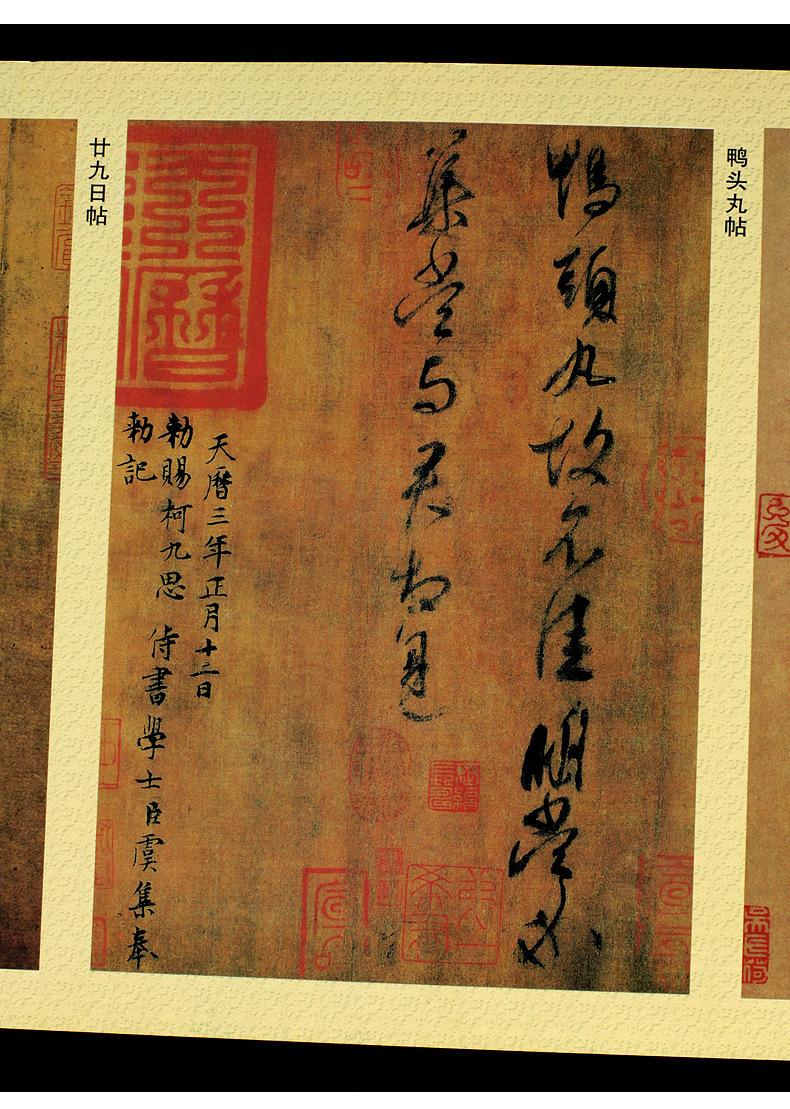 鸭头丸帖
鴨頭丸故不佳明當必
集當与君相見
天曆三年正月十二日
勅賜柯九思 侍書學士臣虞集奉
勅記
廿九日帖